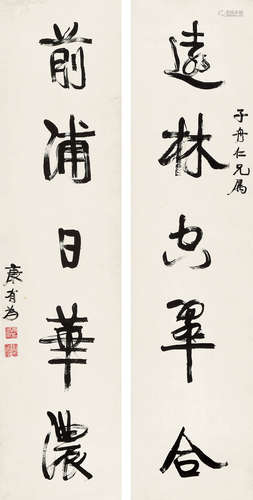 子舟仁兄屬
遠林空翠合
前浦日華濃
康有為